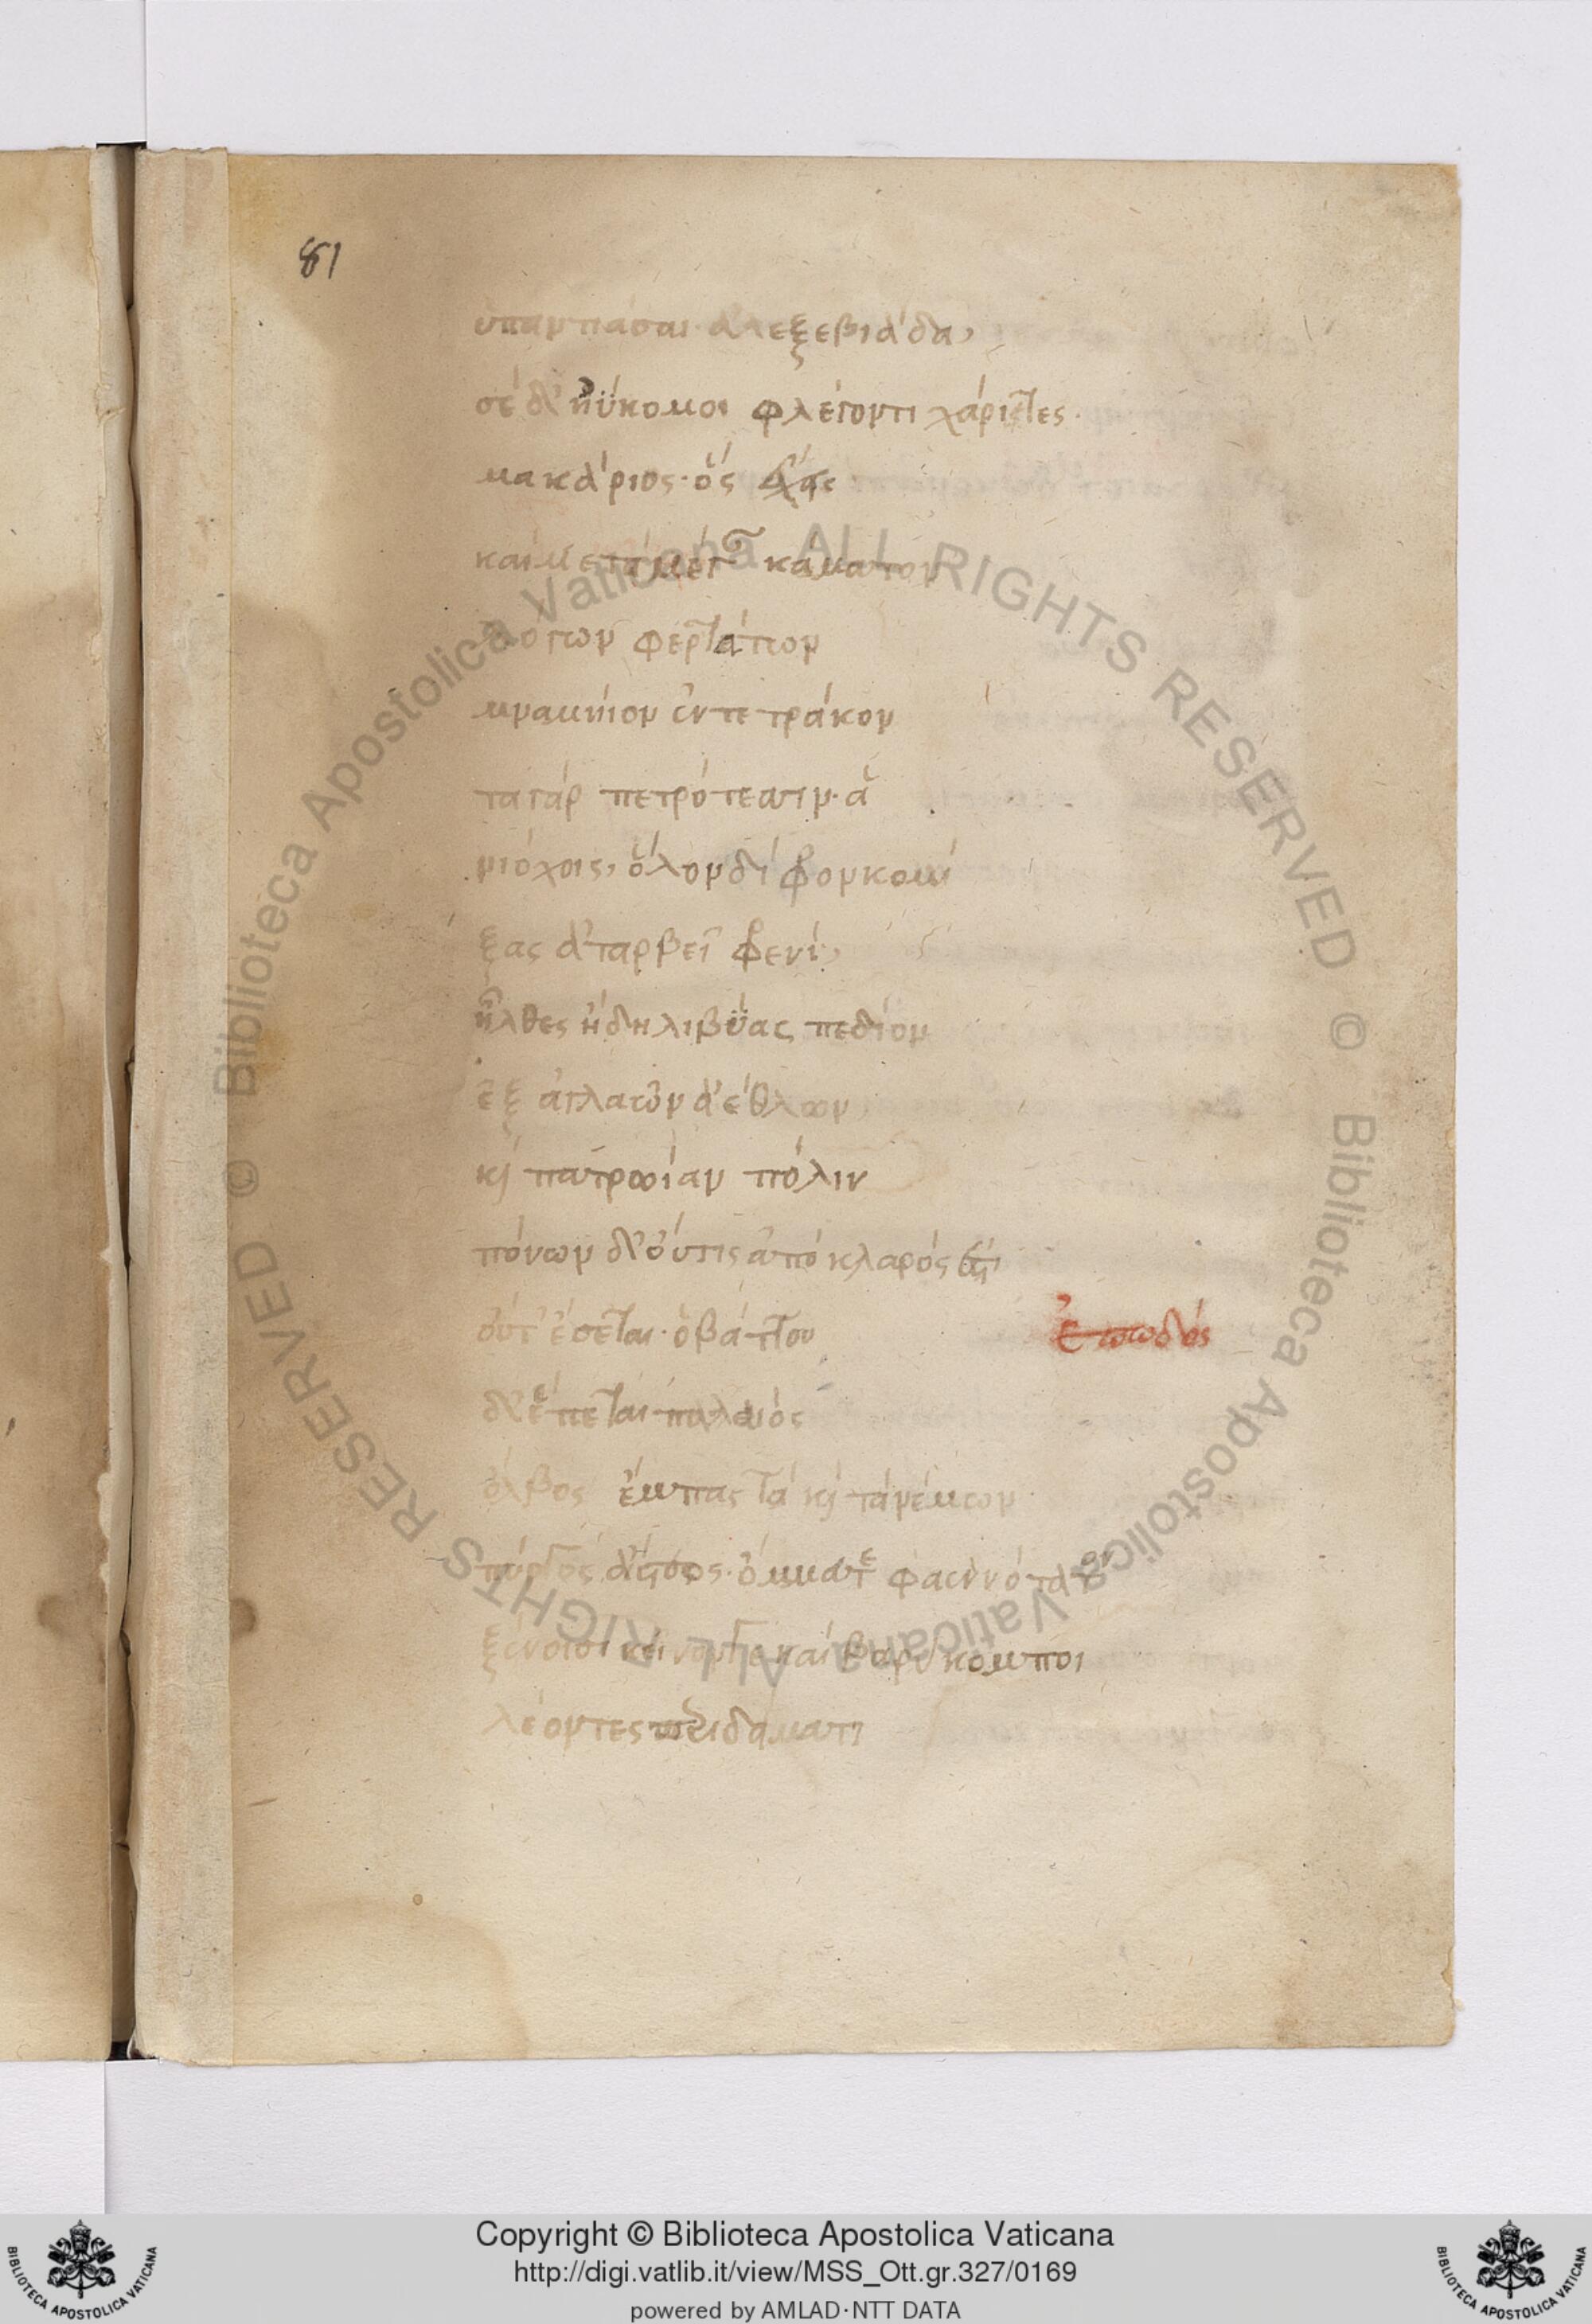 81
υπαντιάσαι· ἀλεξεβιάδα,
σὲ δ' ἠΰκομοι φλέγοντι χάριτες·
μακάριος· ὃς ἔχεις
καὶ μετὰ μέγαν κάματον
λόγων φερτάτων
μναμήϊον ἐν τετράκον
τα γὰρ πετρότεσιν· ἁ
νιόχοις, ὅλον δίφρον κομί
ξας ἀταρβεῖ φρενὶ,
ἦλθες ἤδη λιβύας πεδίον
ἐξ ἀγλαῶν ἀέθλων
κ πατρωίαν πόλιν
πόνων δ' οὔτις ἀπόκλαρός ἐστιν
οὔτ' ἔσεται· ὁ βάττου ἐπωδός
δ' ἕπεται παλαιὸς
ὄλβος ἔμπας τὰ κ τὰ νέμων
πύργος ἄστεος· ὄμμα τε φαεννότατον
ξένοισι κεῖνόν γε καὶ βαρύκομποι
λέοντες περὶ δείματι
Copyright © Biblioteca Apostolica Vaticana
http://digi.vatlib.it/view/MSS_Ott.gr.327/0169
powered by AMLAD·NTT DATA
© Biblioteca Apostolica Vaticana ALL RIGHTS RESERVED
© Biblioteca Apostolica Vaticana ALL RIGHTS RESERVED
BIBLIOTECA APOSTOLICA VATICANA
BIBLIOTECA APOSTOLICA VATICANA